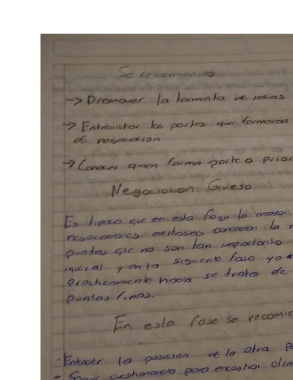 Se recomienda
-> Promover la tormenta de ideas
-> Entrevistar los partes que formaran
de negociacion
-> Conocer quien forma parte a prior
Negociacion Grueso
Es tipico que en esta fase la mayor
negociadores exitosos conceden la
puntos que no son tan importante
inicial y en la siguiente fase ya
practicamente hincia se trata de
puntos finos.
En esta fase se recomie
- Entender la posicion de la otra
- cuestionando para encontrar